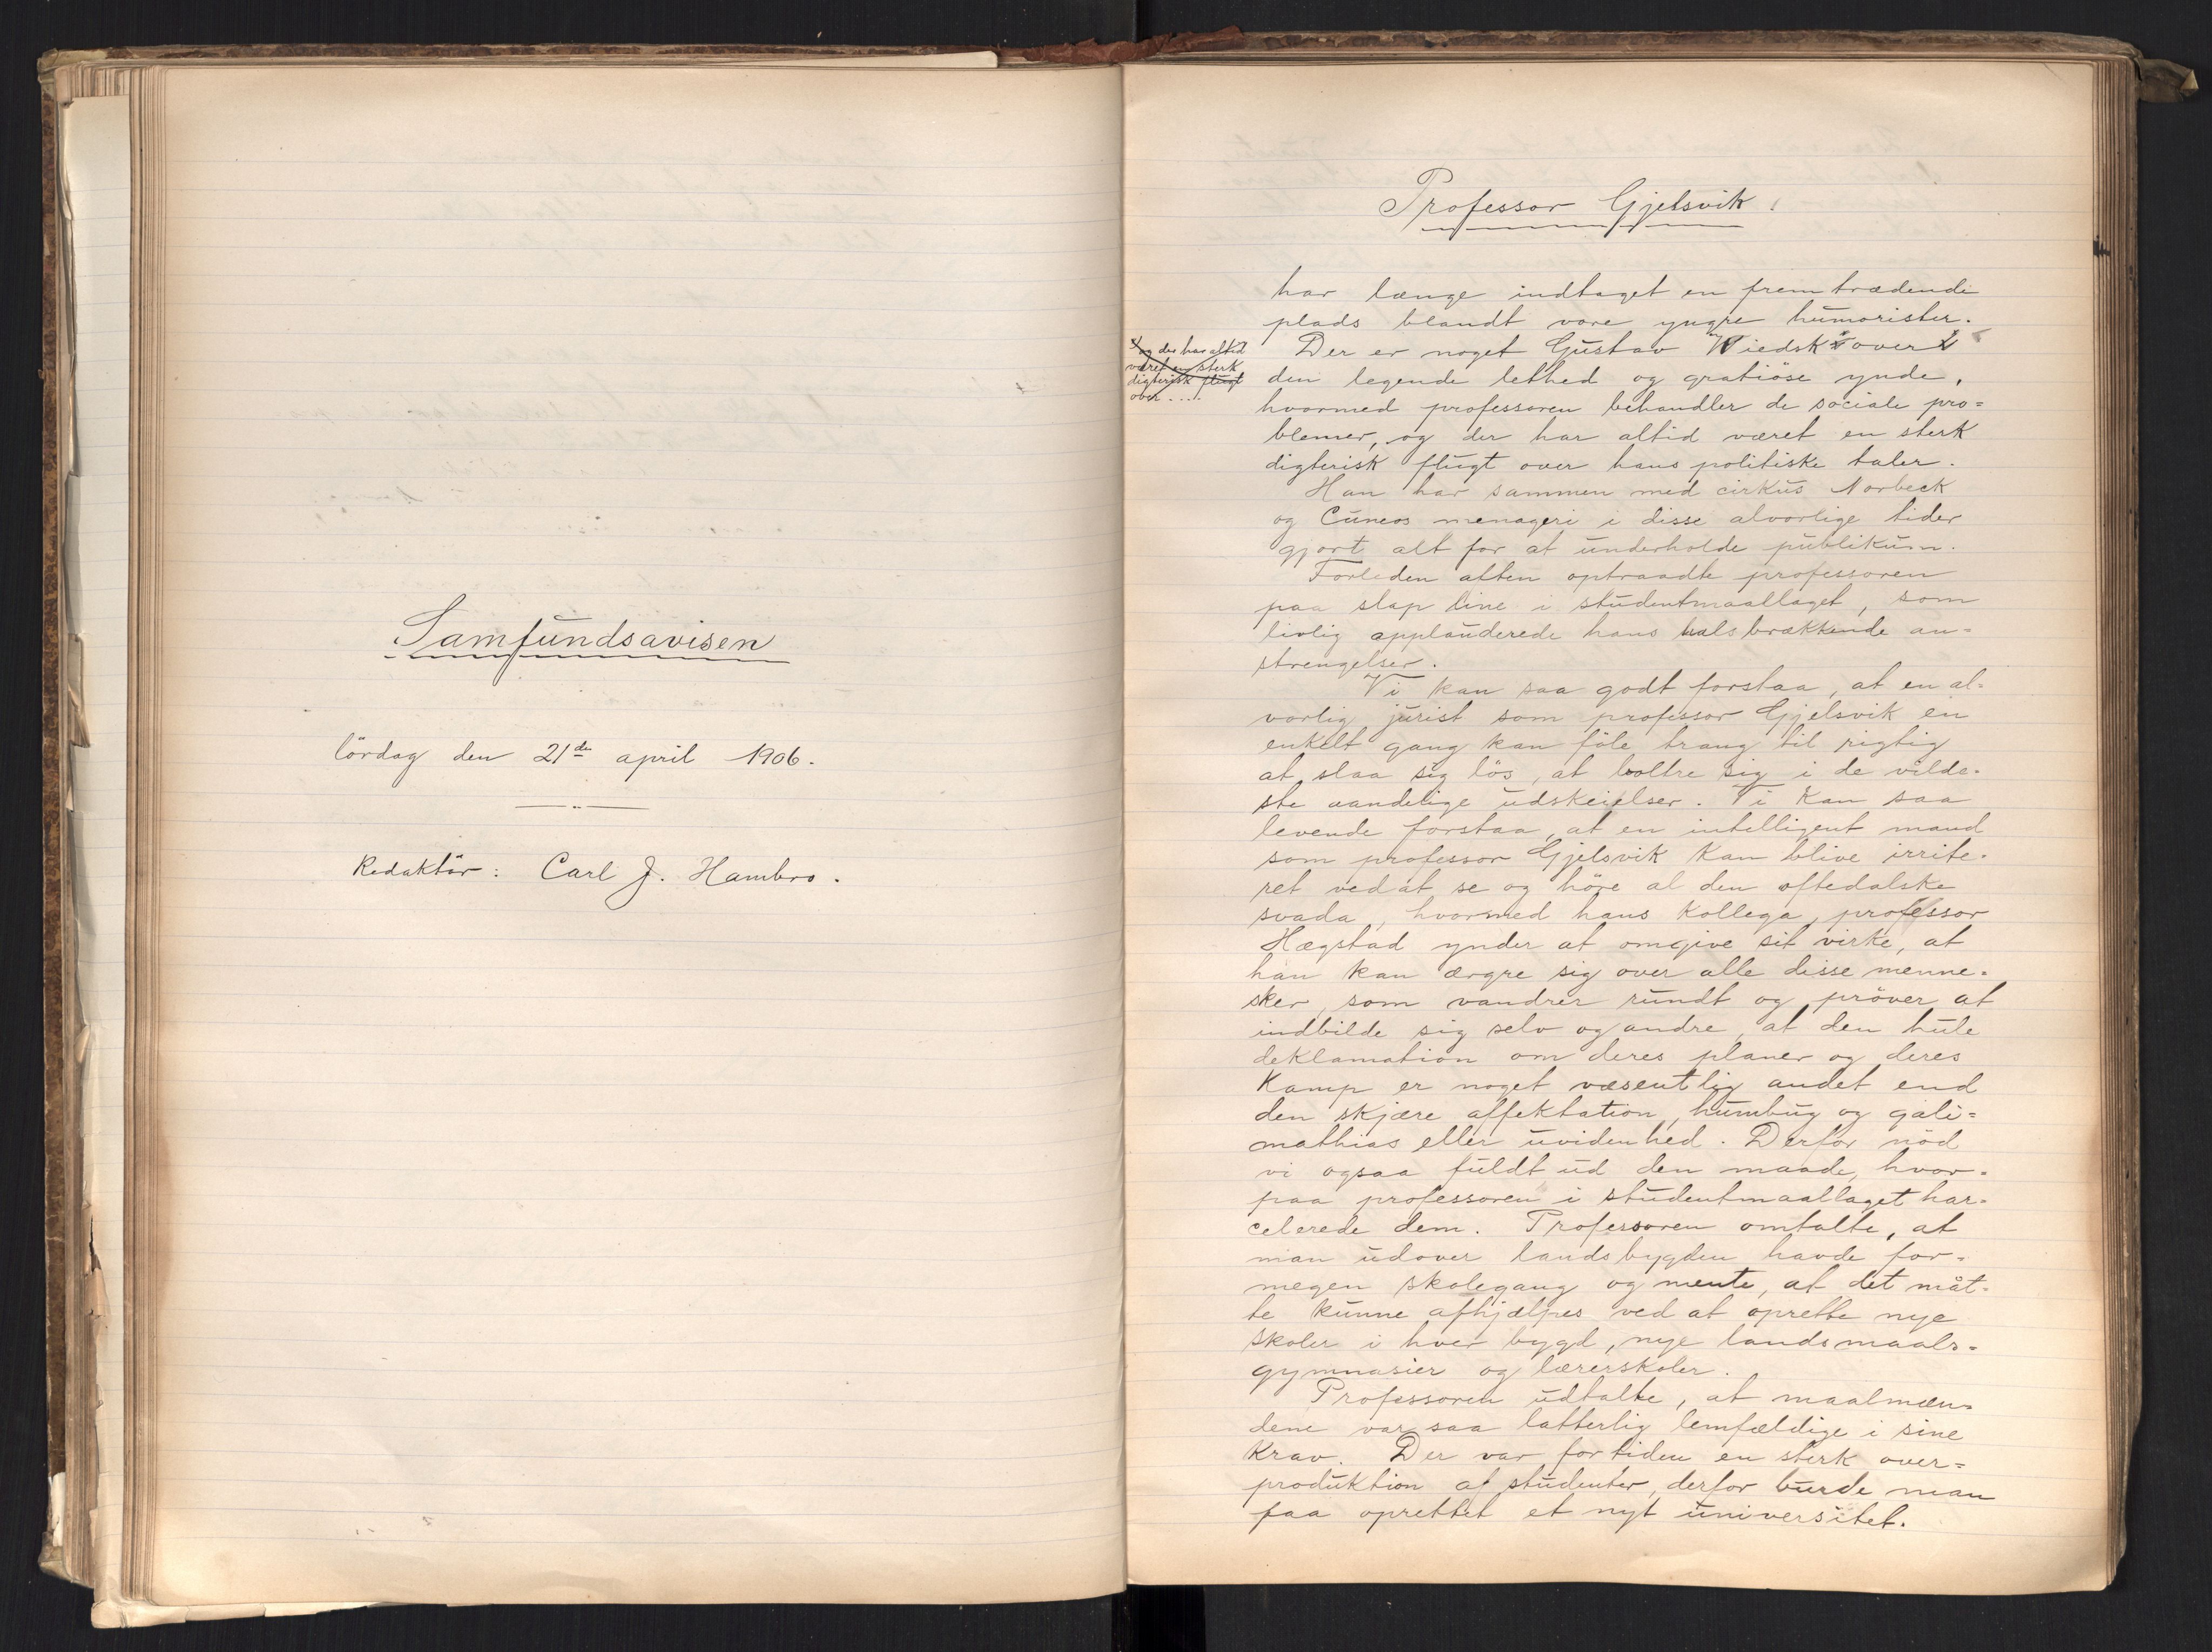 Samfundsavisen
lördag den 21de april 1906.
Redaktör: Carl J. Hambro.
Professor Gjelsvik.
har længe indtaget en fremtrædende
plads blandt vore yngre humorister.
Der er noget Gustav Wiedsk over
og der har altid
været en sterk
digterisk flugt
over ....
den legende lethed og gratiöse ynde,
hvormed professoren behandler de sociale pro=
blemer, og der har altid været en sterk
digterisk flugt over hans politiske taler.
Han har sammen med cirkus Norbeck
og Cuneos menageri i disse alvorlige tider
gjort alt for at underholde publikum.
Forleden aften optraadte professoren
paa slap line i studentmaallaget, som
livlig applauderede hans halsbrækkende an=
strengelser.
Vi kan saa godt forstaa, at en al=
vorlig jurist som professor Gjelsvik en
enkelt gang kan föle trang til rigtig
at slaa sig lös, at boltre sig i de vilde=
ste aandelige udskeielser. Vi kan saa
levende forstaa, at en intelligent mand
som professor Gjelsvik kan blive irrite=
ret ved at se og höre al den oftedalske
svada, hvormed hans kollega, professor
Hægstad ynder at omgive sit virke, at
han kan ærgre sig over alle disse menne=
sker, som vandrer rundt og pröver at
indbilde sig selv og andre, at den hule
deklamation om deres planer og deres
kamp er noget væsentlig andet end
den skjære affektation, humbug og gali=
mathias eller uvidenhed. Derfor nöd
vi ogsaa fuldt ud den maade, hvor=
paa professoren i studentmaallaget har=
celerede dem. Professoren omtalte, at
man udover landsbygden havde for=
megen skolegang og mente, at det måt=
te kunne afhjælpes ved at oprette nye
skoler i hver bygd, nye landsmaals=
gymnasier og lærerskoler.
Professoren udtalte, at maalmæn=
dene var saa latterlig lemfældige i sine
krav. Der var for tiden en sterk over=
produktion af studenter, derfor burde man
faa oprettet et nyt universitet.